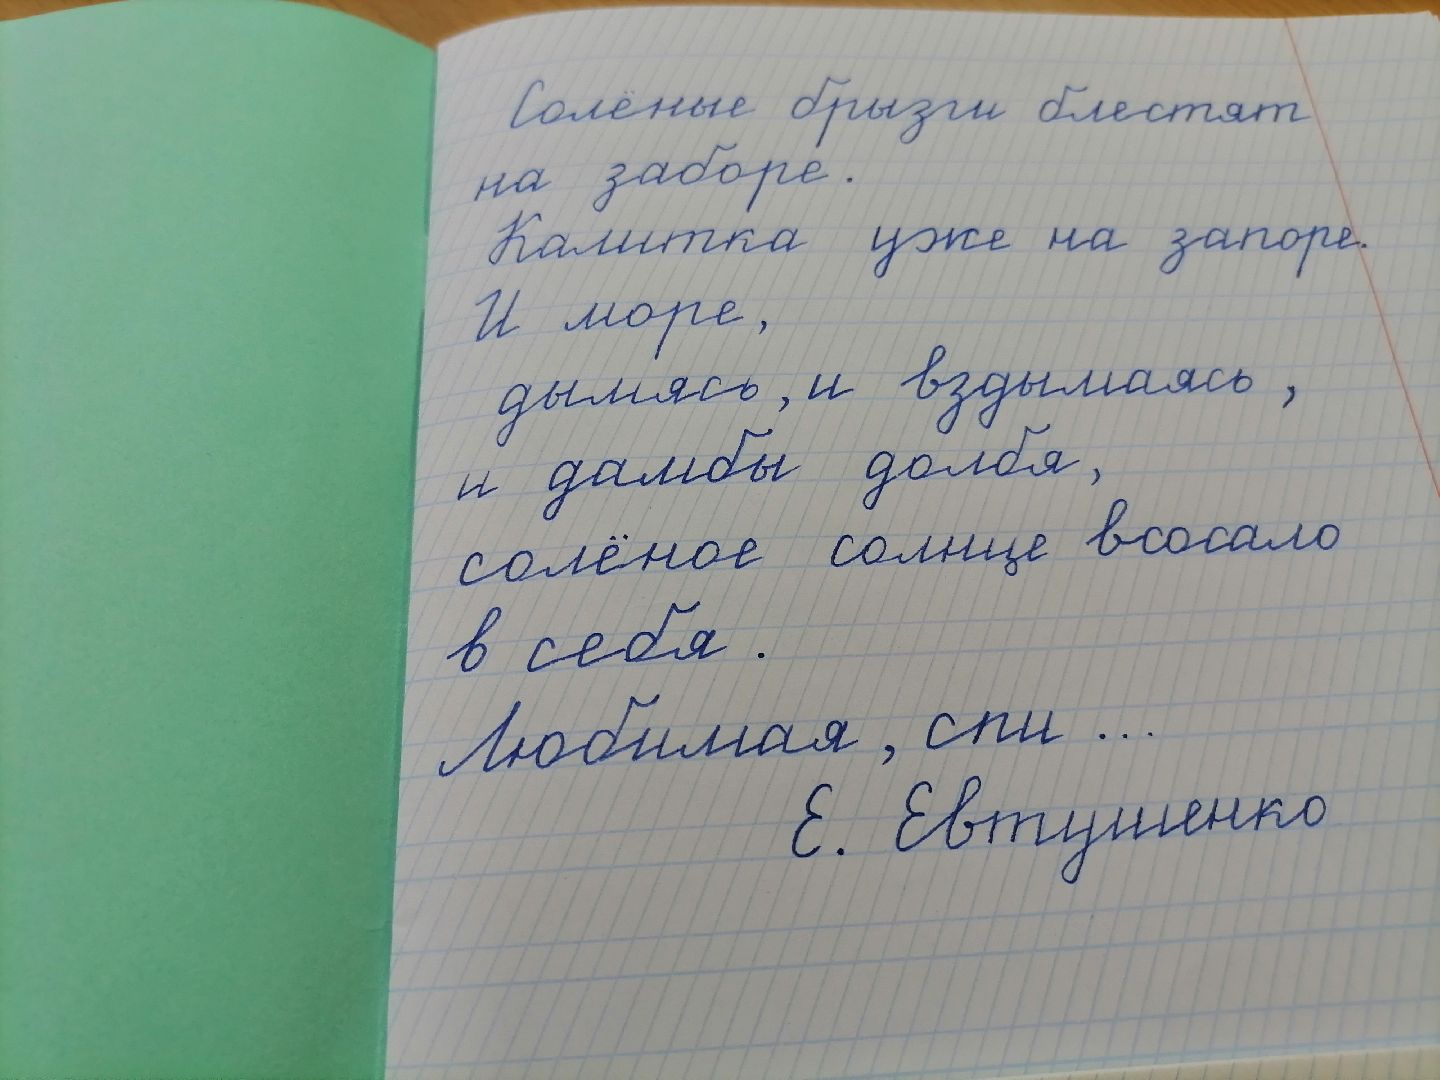 Солёные брызги блестят
на заборе.
Калитка уже на запоре.
И море,
дымясь, и вздымаясь,
и дамбы долбя,
солёное солнце всосало
в себя.
Любимая, спи...
Е. Евтушенко